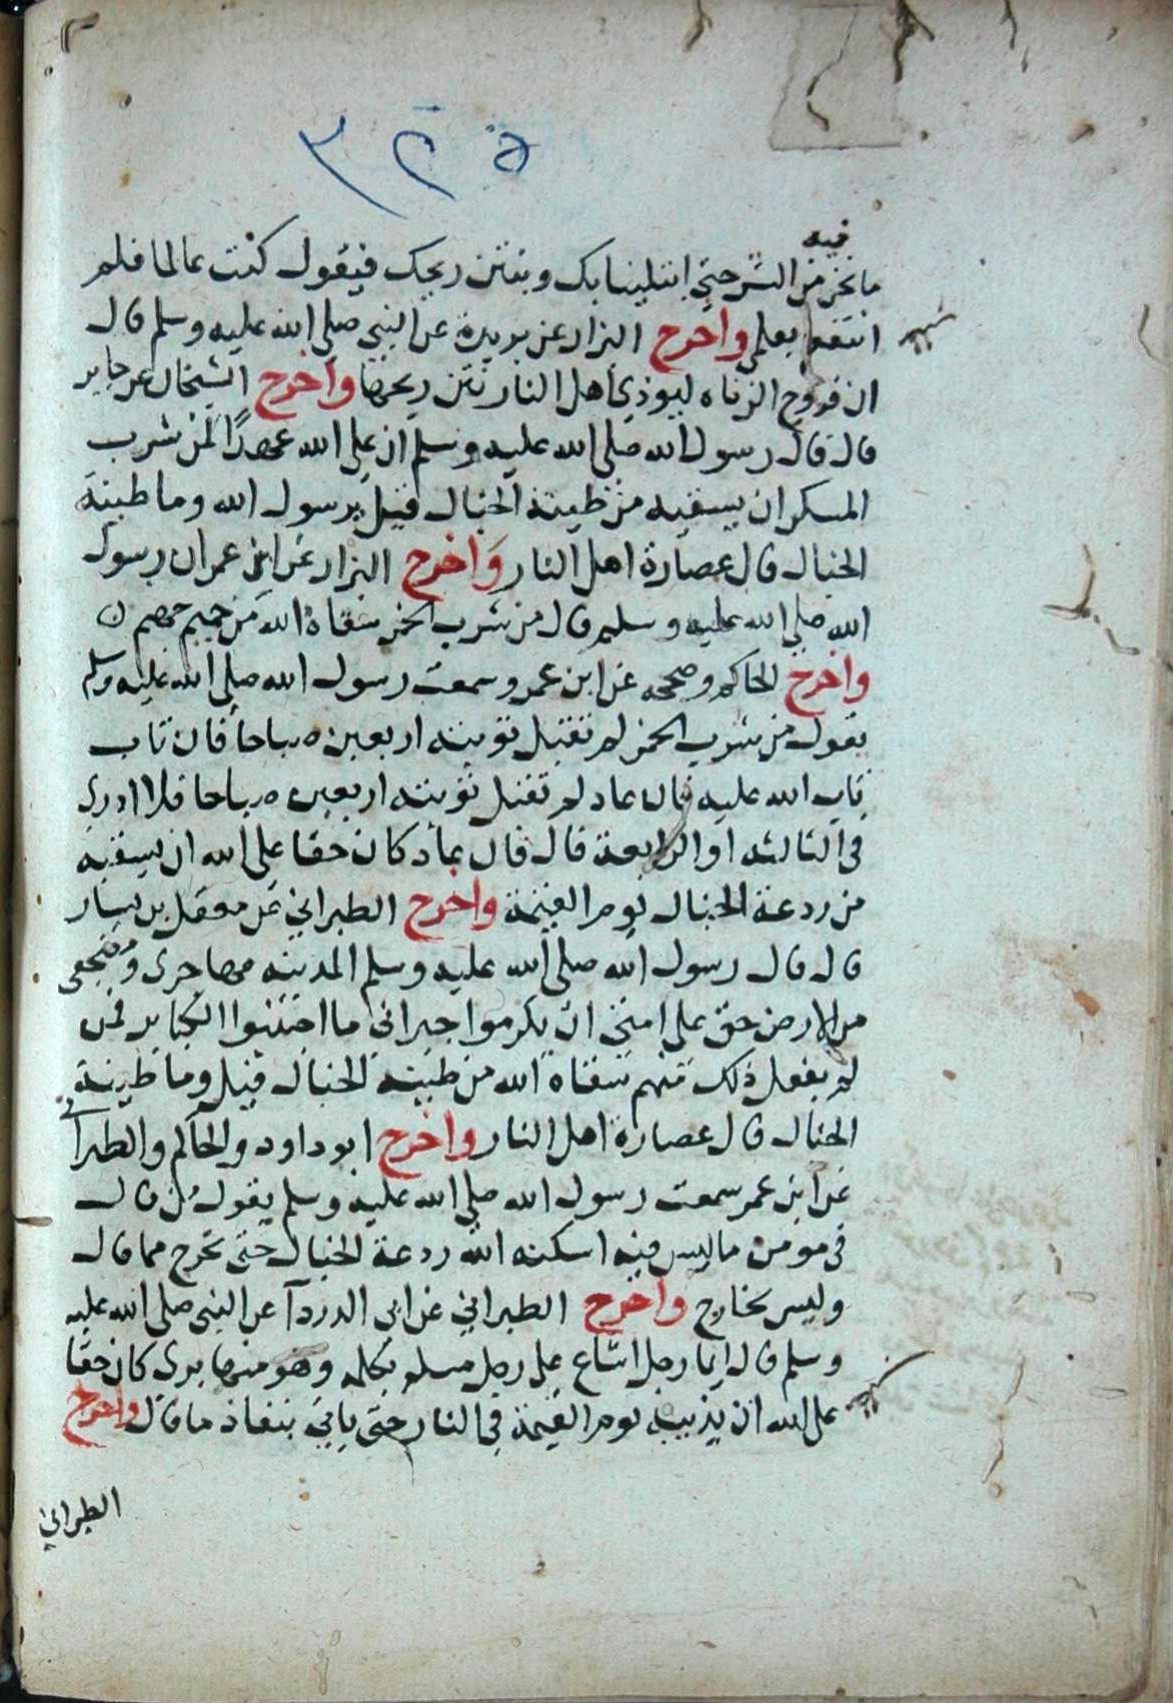 فيه
ما نحن من الشر حتى ابتلينا بك وبنتن ريحك فيقول كنت عالما فلم
انتفع بعلمي واخرج البزار عن بريدة عن النبي صلى الله عليه وسلم قال
ان فروج الزناه ليوذي اهل النار نتن ريحها واخرج الشيخان عن جابر
قال قال رسول الله صلى الله عليه وسلم ان على الله عهدًا لمن شرب
المسكر ان يسقيه من طينة الخبال قيل يرسول الله وما طينة
الخبال قال عصارة اهل النار واخرج البزار عن ابن عمر ان رسول
الله صلى الله عليه وسلم قال من شرب الخمر سقاه الله من حميم جهنم
واخرج الحاكم وصححه عن ابن عمرو سمعت رسول الله صلى الله عليه وسلم
يقول من شرب الخمر لم تقبل توبته اربعين صباحا فان تاب
تاب الله عليه فان عاد لم تقبل توبته اربعين صباحا فلا ادري
في الثالثه او الرابعة قال فان عاد كان حقا على الله ان يسقيه
من ردعة الخبال يوم القيمة واخرج الطبراني عن معقل بن يسار
قال قال رسول الله صلى الله عليه وسلم المدينه مهاجري ومضجعي
من الارض حق على امتي ان يكرموا جيراني ما اجتنبوا الكباير فمن
لم يفعل ذلك منهم سقاه الله من طينة الخبال قيل وما طينة
الخبال قال عصارة اهل النار واخرج ابو داود والحاكم والطبراني
عن ابن عمر سمعت رسول الله صلى الله عليه وسلم يقول من قال
في مومن ما ليس فيه اسكنه الله ردعة الخبال حتى تخرج مما قال
وليس بخارج واخرج الطبراني عن ابي الدردآ عن النبي صلى الله عليه
وسلم قال ايما رجل اشاع على رجل مسلم بكلمه وهو منها بري كان حقا
على الله ان يذيبه يوم القيمة في النار حتى ياتي بنفاذ ما قال واخرج
الطبراني